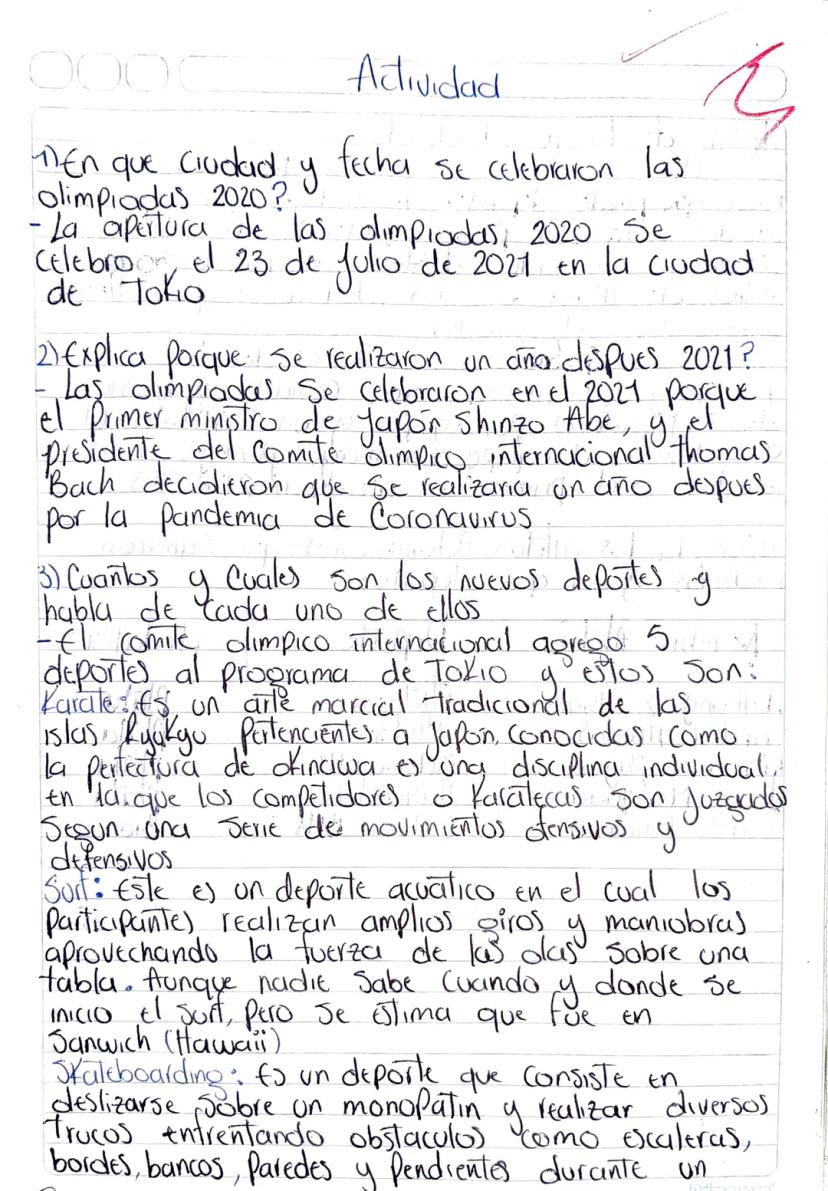 Actividad
1) En que ciudad y fecha se celebraron las
olimpiadas 2020?
- La apertura de las olimpiadas 2020 se
celebro el 23 de julio de 2021 en la ciudad
de Tokio
2) Explica porque se realizaron un año despues 2021?
- Las olimpiadas se celebraron en el 2021 porque
el primer ministro de Japón Shinzo Abe, y el
presidente del comite olimpico internacional thomas
Bach decidieron que se realizaria un año despues
por la pandemia de Coronavirus
3) Cuantos y cuales son los nuevos deportes y
habla de cada uno de ellos
- El comite olimpico internacional agrego 5
deportes al programa de Tokio y estos son:
Karate: Es un arte marcial tradicional de las
islas Ryukyu pertencientes a Japon, conocidas como
la perfectura de okinawa es una disciplina individual,
en la que los competidores o karatecas son juzgados
segun una serie de movimientos ofensivos y
defensivos
Surf: Este es un deporte acuatico en el cual los
participantes realizan amplios giros y maniobras
aprovechando la fuerza de las olas sobre una
tabla. Aunque nadie sabe cuando y donde se
inicio el surf, pero se estima que fue en
Sanwich (Hawaii)
Skateboarding: Es un deporte que consiste en
deslizarse sobre un monopatin y realizar diversos
trucos enfrentando obstaculos como escaleras,
bordes, bancos, paredes y pendientes durante un